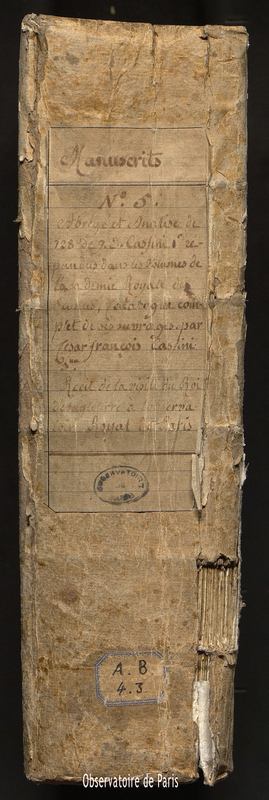 Manuscrits
N.º 5.
Abregé et Analise de
128 de J. D. Cassini 1er re-
pandus dans les volumes de
l'academie Royale des
Sciences, Catalogue com-
plet de ses ouvrages par
Cesar françois Cassini
Recit de la visite du Roi
d'angleterre a l'observa-
toire Royal de Paris
OBSERVATOIRE
A.B.
4.3
Observatoire de Paris